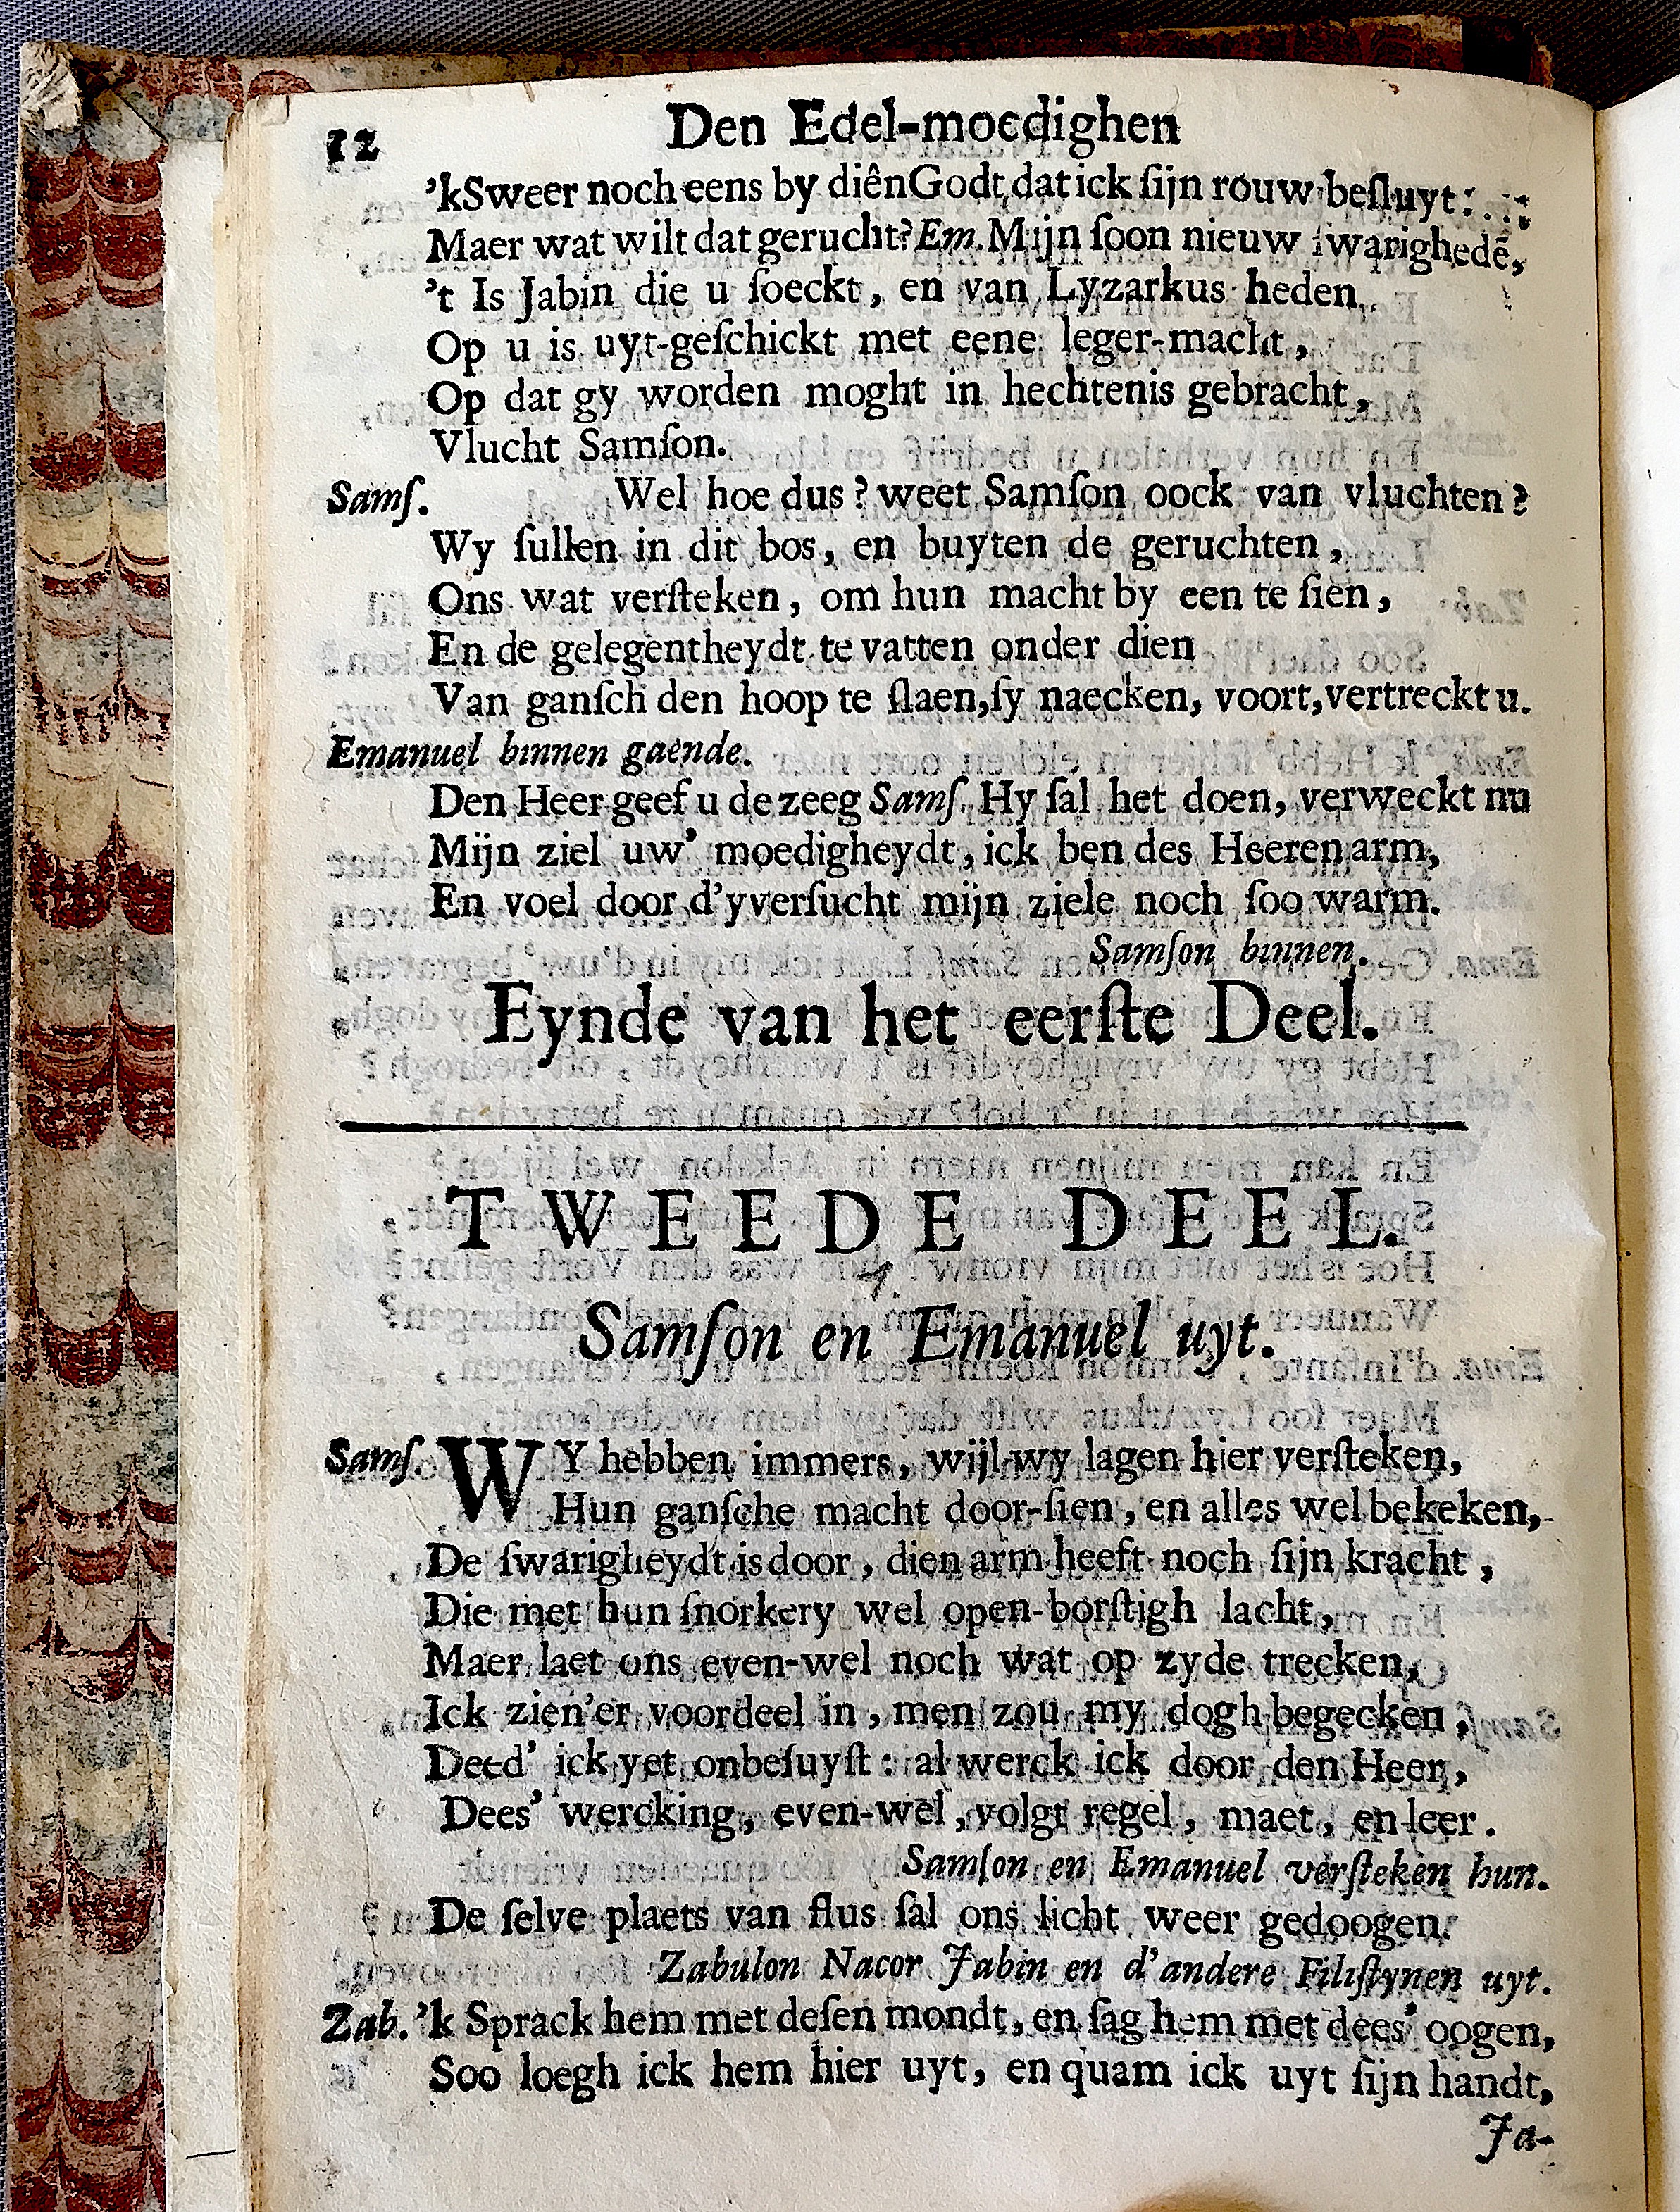 12 Den Edel-moedighen
'kSweer noch eens by diên Godt dat ick ſijn rouw beſluyt:
Maer wat wilt dat gerucht? Em. Mijn ſoon nieuw ſwarighedē,
't Is Jabin die u ſoeckt, en van Lyzarkus heden
Op u is uyt-geſchickt met eene leger-macht,
Op dat gy worden moght in hechtenis gebracht,
Vlucht Samſon.
Samſ. Wel hoe dus? weet Samſon oock van vluchten?
Wy ſullen in dit bos, en buyten de geruchten,
Ons wat verſteken, om hun macht by een te ſien,
En de gelegentheydt te vatten onder dien
Van ganſch den hoop te ſlaen, ſy naecken, voort, vertreckt u.
Emanuel binnen gaende.
Den Heer geef u de zeeg Samſ. Hy ſal het doen, verweckt nu
Mijn ziel uw' moedigheydt, ick ben des Heeren arm,
En voel door d'yverſucht mijn ziele noch ſoo warm.
Samſon binnen.
Eynde van het eerſte Deel.
TWEEDE DEEL.
Samſon en Emanuel uyt.
Samſ. WY hebben immers, wijl wy lagen hier verſteken,
Hun ganſche macht door-ſien, en alles wel bekeken,
De ſwarigheydt is door, dien arm heeft noch ſijn kracht,
Die met hun ſnorkery wel open-borſtigh lacht,
Maer laet ons even-wel noch wat op zyde trecken,
Ick zien'er voordeel in, men zou my dogh begecken,
Deed' ick yet onbeſuyſt: al werck ick door den Heer,
Dees' wercking, even-wel, volgt regel, maet, en leer.
Samſon en Emanuel verſteken hun.
De ſelve plaets van flus ſal ons licht weer gedoogen.
Zabulon Nacor Jabin en d'andere Filiſtynen uyt.
Zab. 'k Sprack hem met deſen mondt, en ſag hem met dees' oogen,
Soo loegh ick hem hier uyt, en quam ick uyt ſijn handt,
Ja-